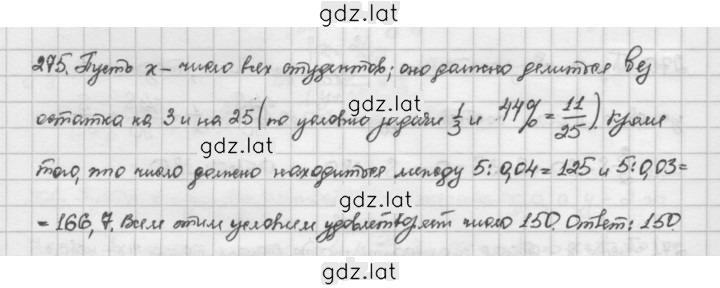 gdz.lat
275. Пусть x - число всех студентов; оно должно делиться без
остатка на 3 и на 25 (по условию задачи 1/3 и 44% = 11/25). Кроме
gdz.lat
gdz.lat
того, это число должно находиться между 5:0,04=125 и 5:0,03=
gdz.lat
=166,7. Всем этим условиям удовлетворяет число 150. Ответ: 150.
gdz.lat